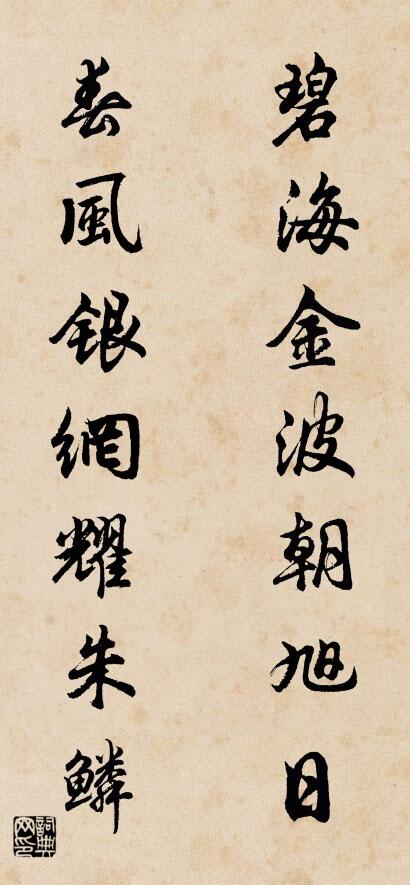 碧海金波朝旭日
春風銀網耀朱鱗
詞典網印